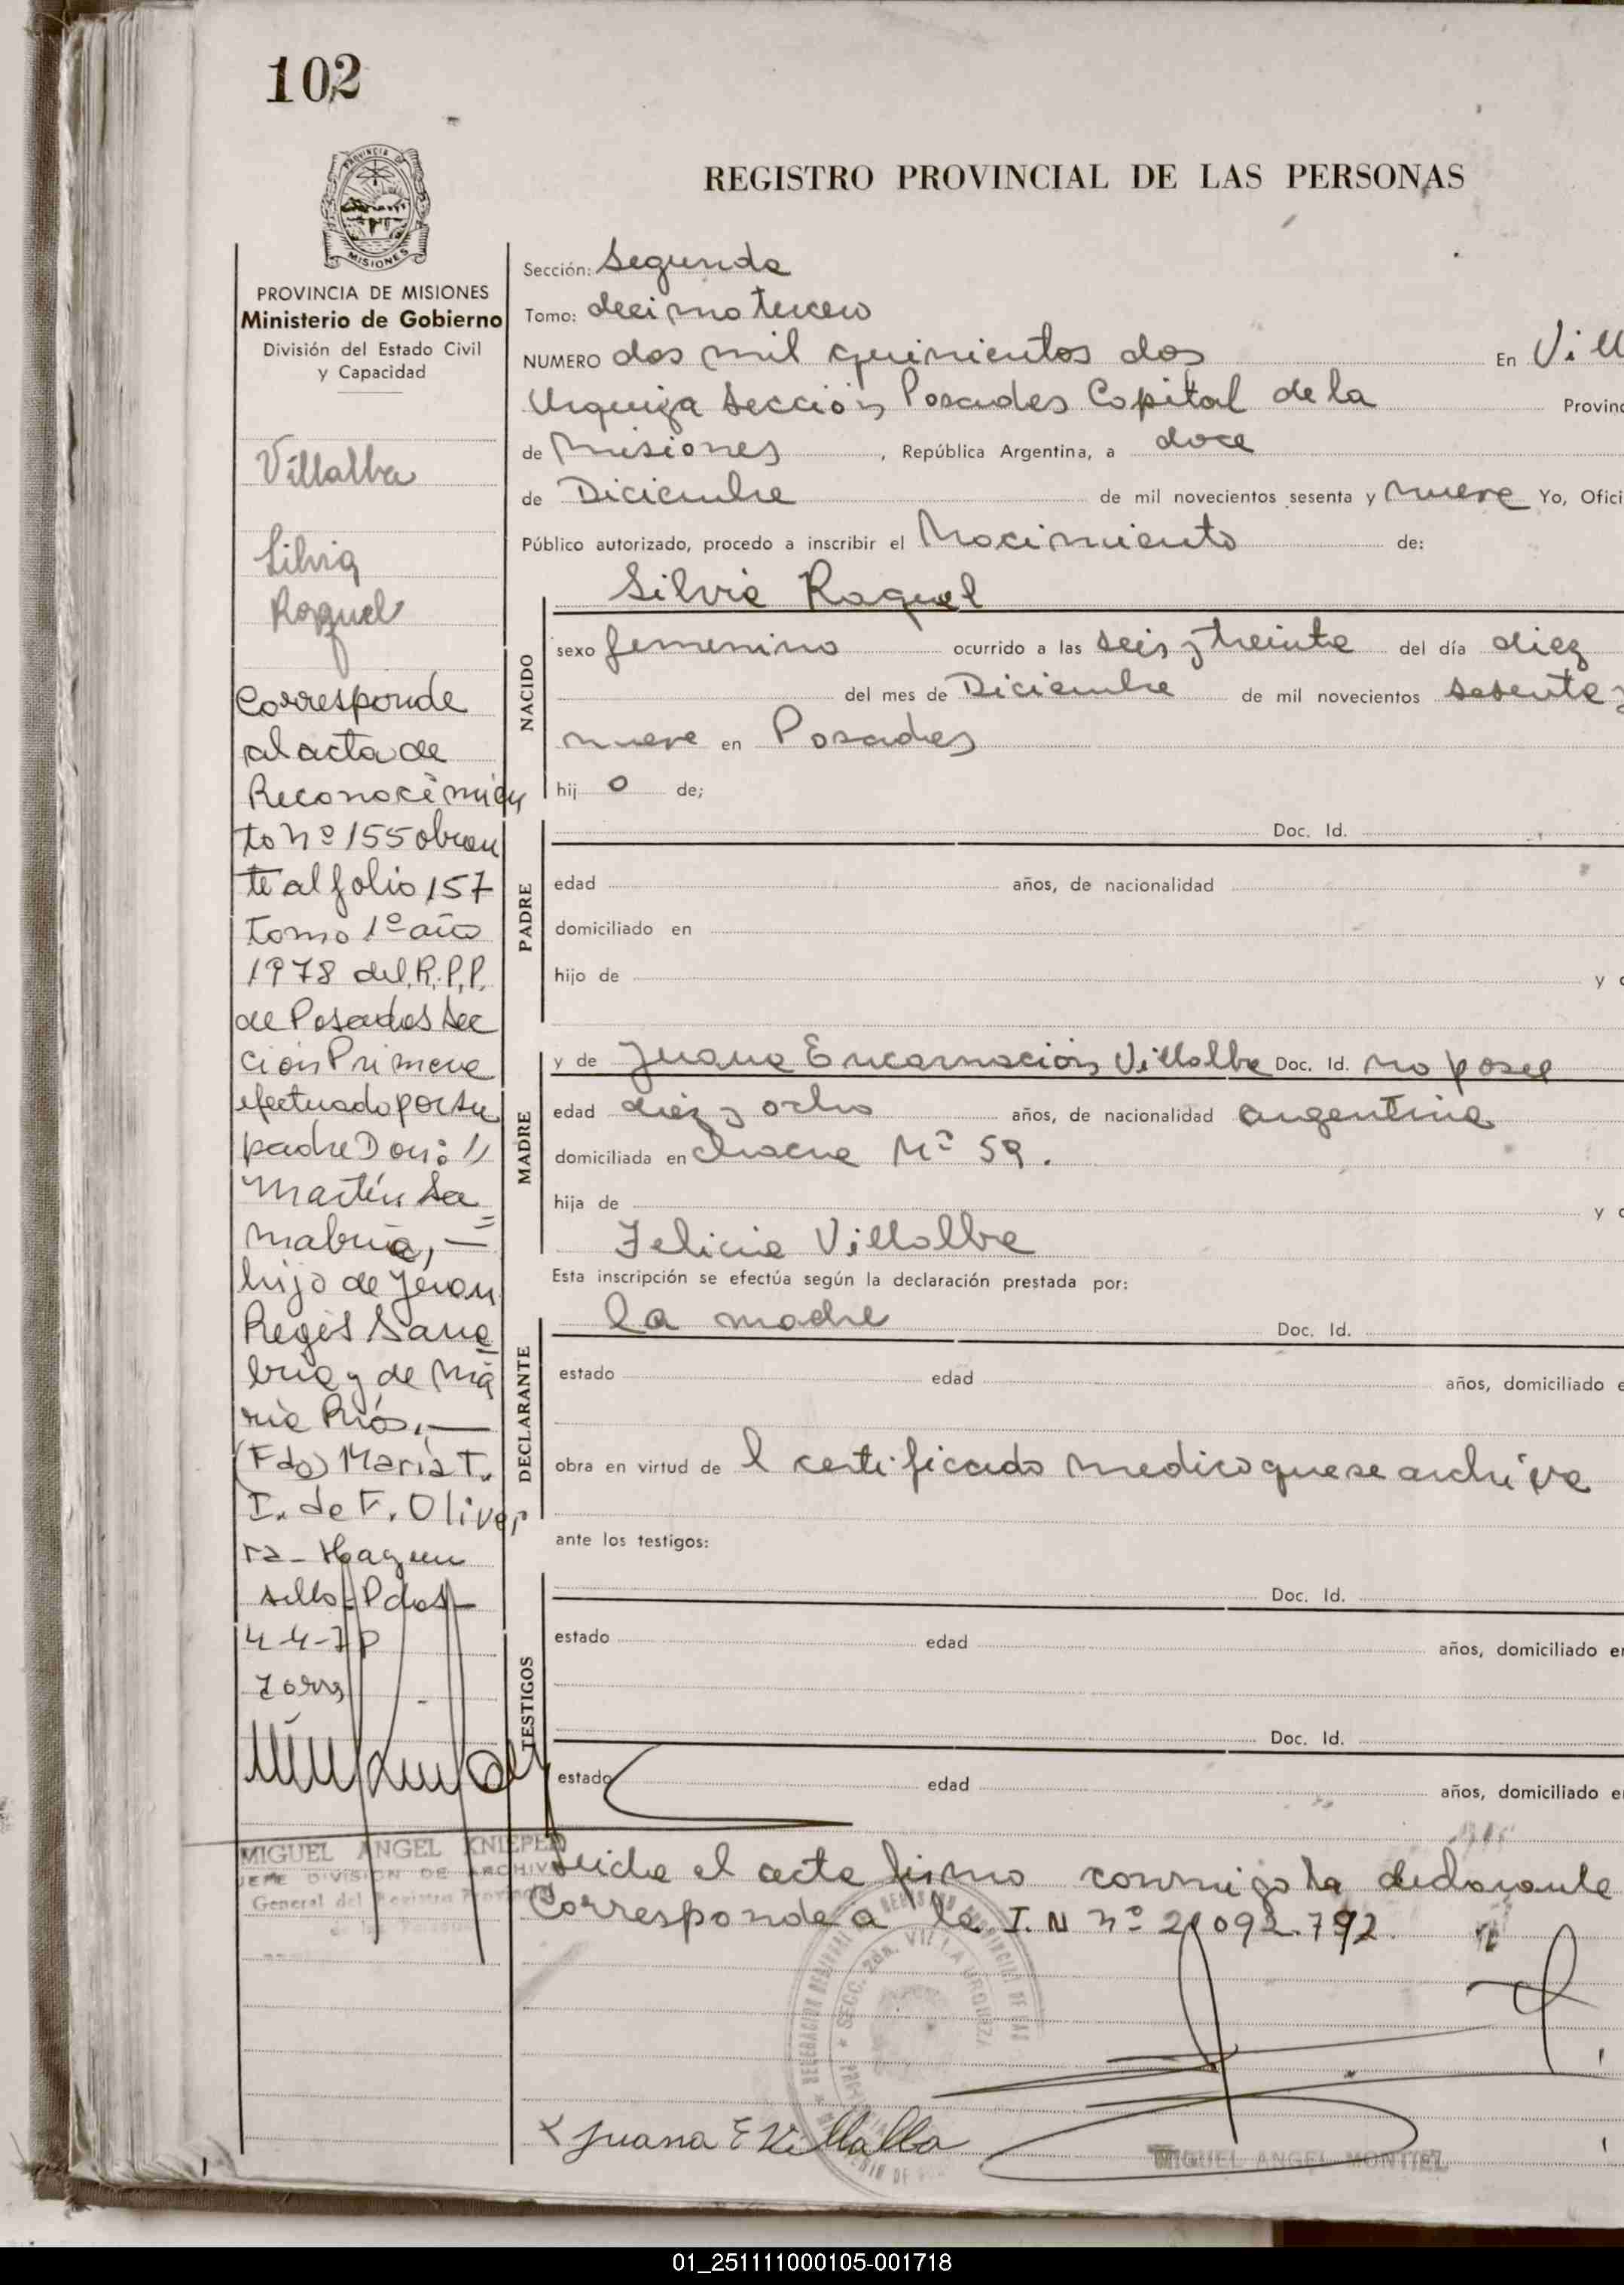 102
PROVINCIA DE
MISIONES
REGISTRO PROVINCIAL DE LAS PERSONAS
PROVINCIA DE MISIONES
Ministerio de Gobierno
División del Estado Civil
y Capacidad
Villalba
Silvia
Raquel
Corresponde
al acta de
Reconocimien
to nº 155 obran
te al folio 157
tomo 1º año
1978 del R.P.P.
de Posadas Sec
ción Primera
efectuado por su
padre Don:
Martín Sa
nabria, —
hijo de Jeron
Regis Sana
bria y de Ma
ria Ríos. —
(Fdo) María T.
I. de F. Olivei
ra - Hay un
sello - Pdas -
4-4-7
MIGUEL ANGEL KNIEPER
JEFE DIVISION DE ARCHIVO
General del Registro Provincial
de las Personas
Sección: Segunda
Tomo: decimo tercero
NUMERO dos mil quinientos dos En Vill
Urquiza Sección Posadas Capital de la Provinc
de Misiones, República Argentina, a doce
de Diciembre de mil novecientos sesenta y nueve Yo, Ofici
Público autorizado, procedo a inscribir el Nacimiento de:
Silvia Raquel
NACIDO
sexo femenino ocurrido a las seis y treinta del día diez
del mes de Diciembre de mil novecientos sesenta y
nueve en Posadas
hij o de;
PADRE
Doc. Id.
edad años, de nacionalidad
domiciliado en
hijo de y d
MADRE
y de Juana Encarnación Villalba Doc. Id. no posee
edad diez y ocho años, de nacionalidad argentina
domiciliada en chacra Nº 59.
hija de y d
Felicia Villalba
Esta inscripción se efectúa según la declaración prestada por:
DECLARANTE
la madre Doc. Id.
estado edad años, domiciliado e
obra en virtud de l certificado medico que se archiva
ante los testigos:
TESTIGOS
Doc. Id.
estado edad años, domiciliado en
Doc. Id.
estado edad años, domiciliado en
Leida el acta firmo conmigo la declarante
Corresponde a la I. N nº 21092.792.
SECC. 2da. VILLA URQUIZA
Juana E Villalba
MIGUEL ANGEL MONTIEL
01_251111000105-001718